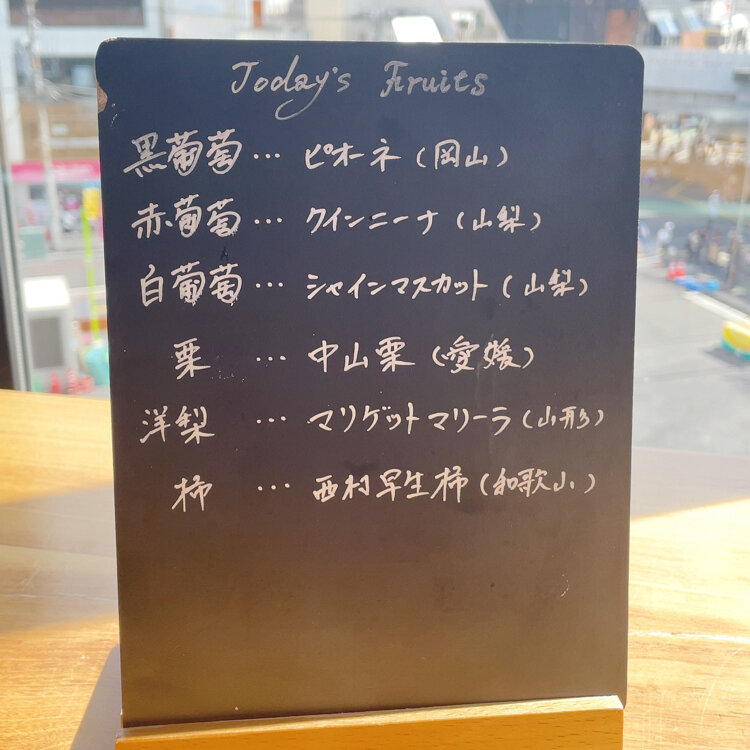 Today's Fruits
黒葡萄… ピオーネ(岡山)
赤葡萄… クインニーナ(山梨)
白葡萄… シャインマスカット(山梨)
栗 … 中山栗(愛媛)
洋梨 … マリゲットマリーラ(山形)
柿 … 西村早生柿(和歌山)